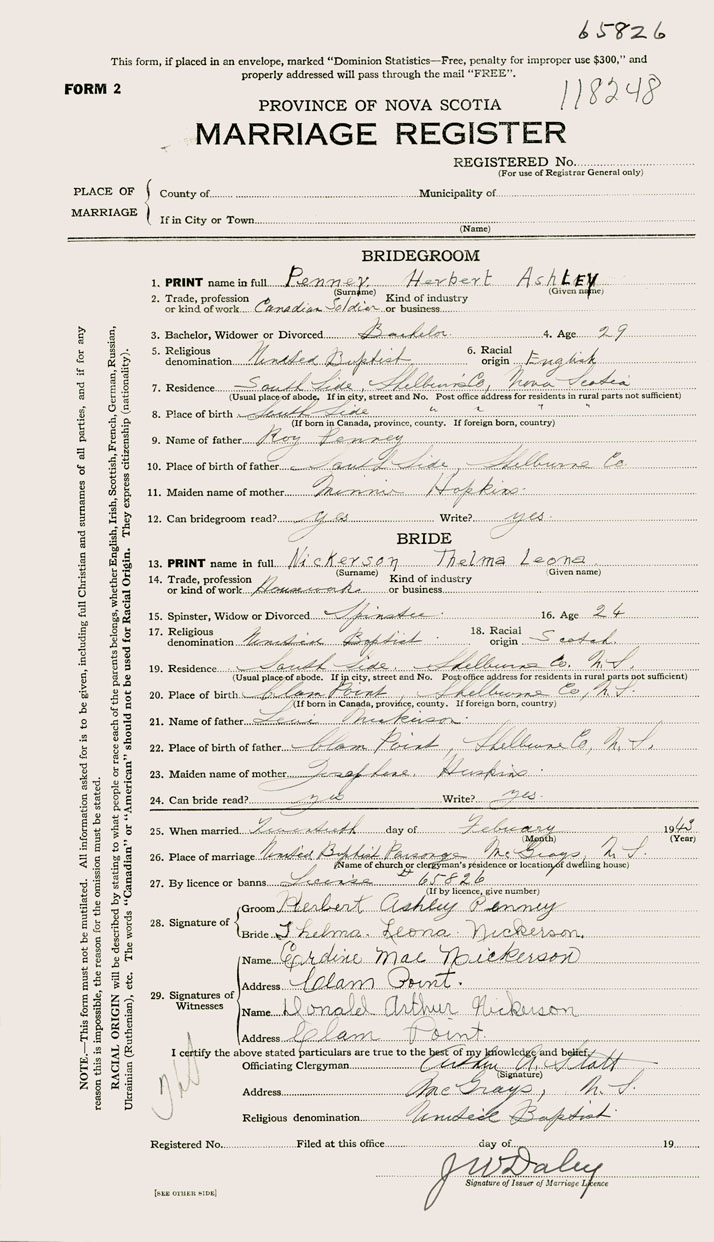 65826
This form, if placed in an envelope, marked "Dominion Statistics—Free, penalty for improper use $300," and
properly addressed will pass through the mail "FREE".
FORM 2
118248
PROVINCE OF NOVA SCOTIA
MARRIAGE REGISTER
REGISTERED No.
(For use of Registrar General only)
PLACE OF MARRIAGE
County of Municipality of
If in City or Town
(Name)
BRIDEGROOM
1. PRINT name in full Penney Herbert AshLEY
(Surname) (Given name)
2. Trade, profession or kind of work Canadian Soldier Kind of industry or business
3. Bachelor, Widower or Divorced Bachelor 4. Age 29
5. Religious denomination United Baptist 6. Racial origin English
7. Residence South Side, Shelburne Co, Nova Scotia
(Usual place of abode. If in city, street and No. Post office address for residents in rural parts not sufficient)
8. Place of birth South Side " " " "
(If born in Canada, province, county. If foreign born, country)
9. Name of father Roy Penney
10. Place of birth of father South Side, Shelburne Co
11. Maiden name of mother Minnie Hopkins
12. Can bridegroom read? yes Write? yes
BRIDE
13. PRINT name in full Nickerson Thelma Leona
(Surname) (Given name)
14. Trade, profession or kind of work Housework Kind of industry or business
15. Spinster, Widow or Divorced Spinster 16. Age 24
17. Religious denomination United Baptist 18. Racial origin Scotch
19. Residence South Side, Shelburne Co. N.S.
(Usual place of abode. If in city, street and No. Post office address for residents in rural parts not sufficient)
20. Place of birth Clam Point, Shelburne Co, N.S.
(If born in Canada, province, county. If foreign born, country)
21. Name of father Levi Nickerson
22. Place of birth of father Clam Point, Shelburne Co, N.S.
23. Maiden name of mother Josephine Huskins
24. Can bride read? yes Write? yes
25. When married day of February 1943
(Month) (Year)
26. Place of marriage United Baptist Parsonage McGrays, N.S.
(Name of church or clergyman's residence or location of dwelling house)
27. By licence or banns License 65826
(If by licence, give number)
28. Signature of
Groom Herbert Ashley Penney
Bride Thelma Leona Nickerson
29. Signatures of Witnesses
Name Erdine Mae Nickerson
Address Clam Point.
Name Donald Arthur Nickerson
Address Clam Point.
I certify the above stated particulars are true to the best of my knowledge and belief.
Officiating Clergyman Arthur A.
(Signature)
Address McGrays, N.S.
Religious denomination United Baptist
Registered No. Filed at this office day of 19
J W Daley
Signature of Issuer of Marriage Licence
[SEE OTHER SIDE]
NOTE.—This form must not be mutilated. All information asked for is to be given, including full Christian and surnames of all parties, and if for any
reason this is impossible, the reason for the omission must be stated.
RACIAL ORIGIN will be described by stating to what people or race each of the parents belongs, whether English, Irish, Scottish, French, German, Russian,
Ukrainian (Ruthenian), etc. The words "Canadian" or "American" should not be used for Racial Origin. They express citizenship (nationality).